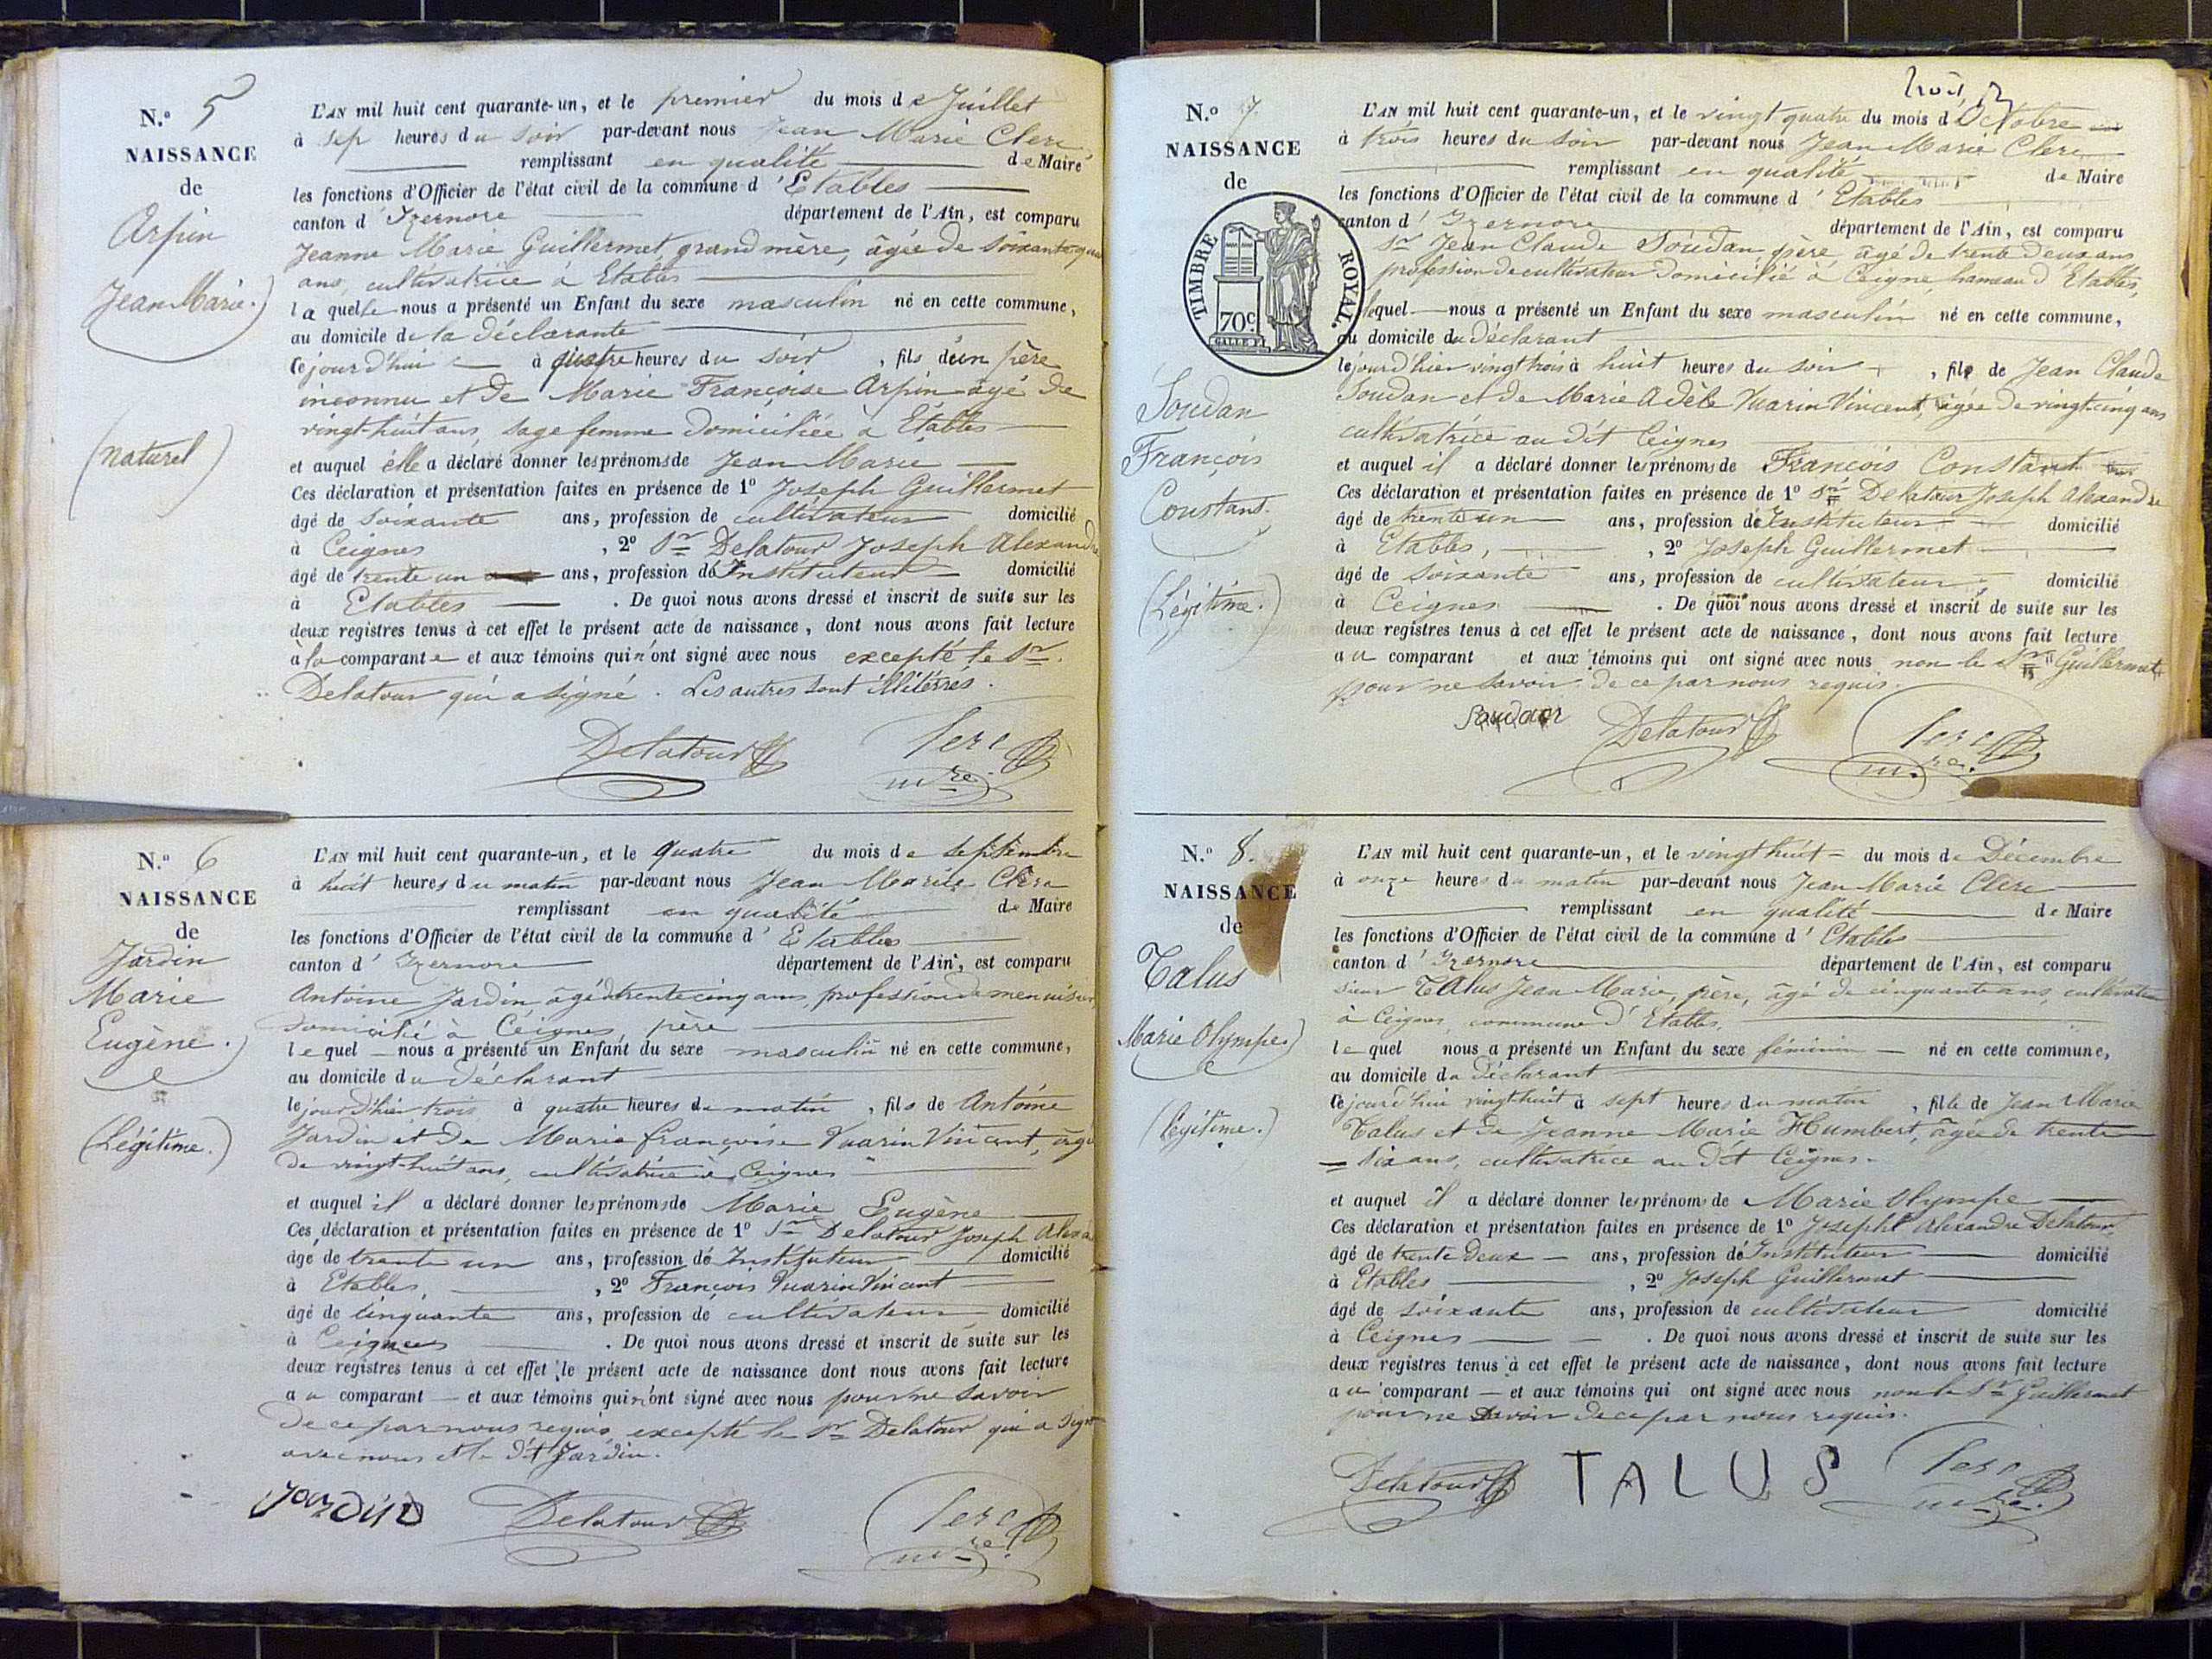 N.° 5
NAISSANCE
de
Arpin
Jean Marie.
(naturel)
L'AN mil huit cent quarante-un, et le premier du mois de Juillet
à sep heures du soir par-devant nous Jean Marie Clerc,
remplissant en qualité de Maire
les fonctions d'Officier de l'état civil de la commune d'Etables
canton d'Izernore département de l'Ain, est comparu
Jeanne Marie Guillermet, grand mère, âgée de soixante
ans, cultivatrice à Etables
laquelle nous a présenté un Enfant du sexe masculin né en cette commune,
au domicile de la déclarante
cejourd'hui à quatre heures du soir, fils d'un père
inconnu et de Marie Françoise Arpin âgé de
vingt-huit ans, sage femme domiciliée à Etables
et auquel elle a déclaré donner les prénoms de Jean Marie
Ces déclaration et présentation faites en présence de 1° Joseph Guillermet
âgé de soixante ans, profession de cultivateur domicilié
à Ceignes, 2° Sr Delatour Joseph Alexandre
âgé de trente un ans, profession d'Instituteur domicilié
à Etables. De quoi nous avons dressé et inscrit de suite sur les
deux registres tenus à cet effet le présent acte de naissance, dont nous avons fait lecture
à la comparante et aux témoins qui n'ont signé avec nous excepté le Sr.
Delatour qui a signé. Les autres sont illitérres.
Delatour Clerc
mre.
N.° 6
NAISSANCE
de
Jardin
Marie
Eugène.
(Légitime.)
L'AN mil huit cent quarante-un, et le quatre du mois de septembre
à huit heures du matin par-devant nous Jean Marie Clerc
remplissant en qualité de Maire
les fonctions d'Officier de l'état civil de la commune d'Etables
canton d'Izernore département de l'Ain, est comparu
Antoine Jardin âgé de trente cinq ans, profession de menuisier,
domicilié à Ceignes, père
lequel nous a présenté un Enfant du sexe masculin né en cette commune,
au domicile du déclarant
le jour d'hier trois à quatre heures du matin, fils de Antoine
Jardin et de Marie françoise Vuarin Vincent, âgé
de vingt-huit ans, cultivatrice à Ceignes
et auquel il a déclaré donner les prénoms de Marie Eugène
Ces déclaration et présentation faites en présence de 1° Sr Delatour Joseph Alexa
âgé de trente un ans, profession de Instituteur domicilié
à Etables, 2° François Vuarin Vincent
âgé de cinquante ans, profession de cultivateur domicilié
à Ceignes. De quoi nous avons dressé et inscrit de suite sur les
deux registres tenus à cet effet le présent acte de naissance dont nous avons fait lecture
au comparant et aux témoins qui n'ont signé avec nous pour ne savoir
de ce par nous requis, excepté le Sr Delatour qui a signé
avec nous et le dit Jardin.
Jardin Delatour Clerc
mre.
N.° 7.
NAISSANCE
de
TIMBRE ROYAL.
70c
Soudan
François
Constant.
(Légitime.)
trois
L'AN mil huit cent quarante-un, et le vingt quatre du mois d'Octobre
à trois heures du soir par-devant nous Jean Marie Clerc
remplissant en qualité de Maire
les fonctions d'Officier de l'état civil de la commune d'Etables
canton d'Izernore département de l'Ain, est comparu
Sr Jean Claude Soudan, père, âgé de trente deux ans
profession de cultivateur domicilié à Ceigne, hameau d'Etables,
lequel nous a présenté un Enfant du sexe masculin né en cette commune,
au domicile du déclarant
le jour d'hier vingt trois à huit heures du soir, fils de Jean Claude
Soudan et de Marie Adèle Vuarin Vincent, âgée de vingt-cinq ans
cultivatrice au dit Ceignes
et auquel il a déclaré donner les prénoms de François Constant
Ces déclaration et présentation faites en présence de 1° Sr Delatour Joseph Alexandre
âgé de trente un ans, profession d'Instituteur domicilié
à Etables, 2° Joseph Guillermet
âgé de soixante ans, profession de cultivateur domicilié
à Ceignes. De quoi nous avons dressé et inscrit de suite sur les
deux registres tenus à cet effet le présent acte de naissance, dont nous avons fait lecture
au comparant et aux témoins qui ont signé avec nous non le Sr Guillermet
pour ne savoir de ce par nous requis.
Soudan Delatour Clerc
mre.
N.° 8.
NAISSANCE
de
Talus
Marie Olympe.
(légitime.)
L'AN mil huit cent quarante-un, et le vingt huit du mois de Décembre
à onze heures du matin par-devant nous Jean Marie Clerc
remplissant en qualité de Maire
les fonctions d'Officier de l'état civil de la commune d'Etables
canton d'Izernore département de l'Ain, est comparu
sieur Talus Jean Marie, père, âgé de cinquante ans, cultivateur
à Ceignes, commune d'Etables,
lequel nous a présenté un Enfant du sexe féminin né en cette commune,
au domicile du déclarant
cejourd'hui vingt-huit à sept heures du matin, fille de Jean Marie
Talus et de Jeanne Marie Humbert, âgée de trente
six ans, cultivatrice au dit Ceignes.
et auquel il a déclaré donner les prénoms de Marie Olympe
Ces déclaration et présentation faites en présence de 1° Joseph Alexandre Delatour,
âgé de trente deux ans, profession d'Instituteur domicilié
à Etables, 2° Joseph Guillermet
âgé de soixante ans, profession de cultivateur domicilié
à Ceignes. De quoi nous avons dressé et inscrit de suite sur les
deux registres tenus à cet effet le présent acte de naissance, dont nous avons fait lecture
au comparant et aux témoins qui ont signé avec nous non le Sr Guillermet
pour ne savoir de ce par nous requis.
Delatour TALUS Clerc
mre.